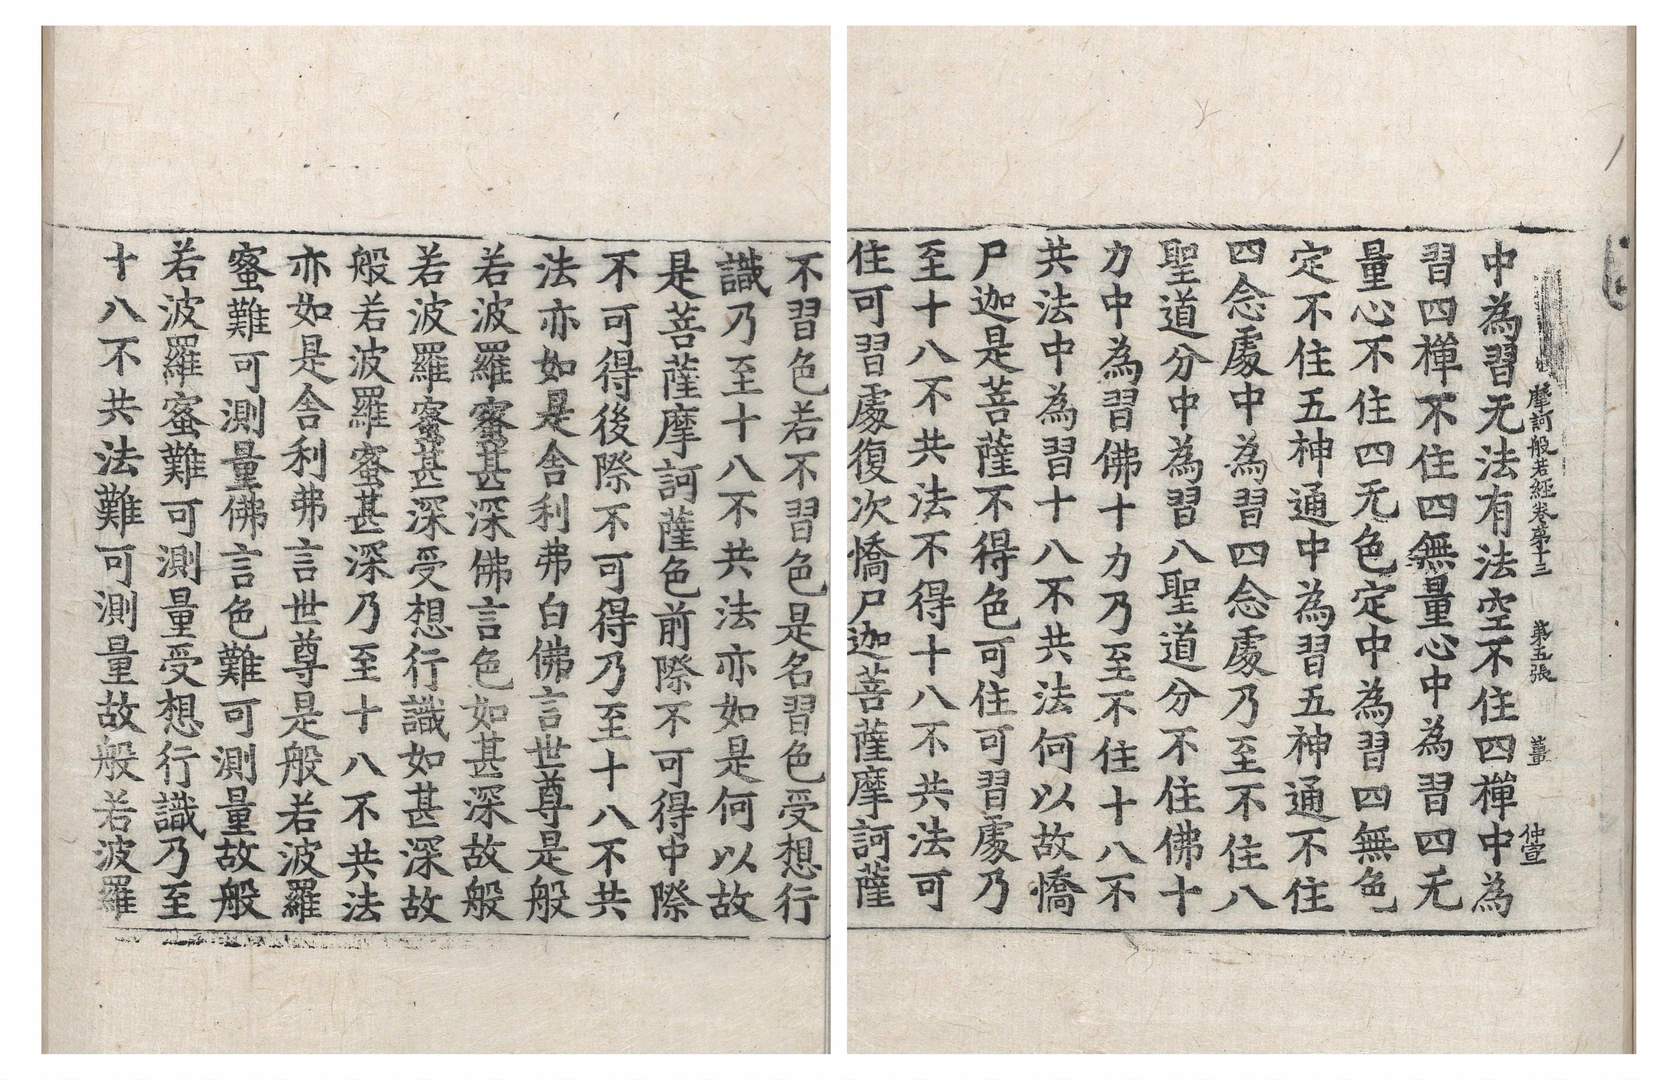 摩訶般若經卷第十三　第五張　董　仲宣
中為習无法有法空不住四禪中為
習四禪不住四無量心中為習四无
量心不住四无色定中為習四無色
定不住五神通中為習五神通不住
四念處中為習四念處乃至不住八
聖道分中為習八聖道分不住佛十
力中為習佛十力乃至不住十八不
共法中為習十八不共法何以故憍
尸迦是菩薩不得色可住可習處乃
至十八不共法不得十八不共法可
住可習處復次憍尸迦菩薩摩訶薩
不習色若不習色是名習色受想行
識乃至十八不共法亦如是何以故
是菩薩摩訶薩色前際不可得中際
不可得後際不可得乃至十八不共
法亦如是舍利弗白佛言世尊是般
若波羅蜜甚深佛言色如甚深故般
若波羅蜜甚深受想行識如甚深故
般若波羅蜜甚深乃至十八不共法
亦如是舍利弗言世尊是般若波羅
蜜難可測量佛言色難可測量故般
若波羅蜜難可測量受想行識乃至
十八不共法難可測量故般若波羅